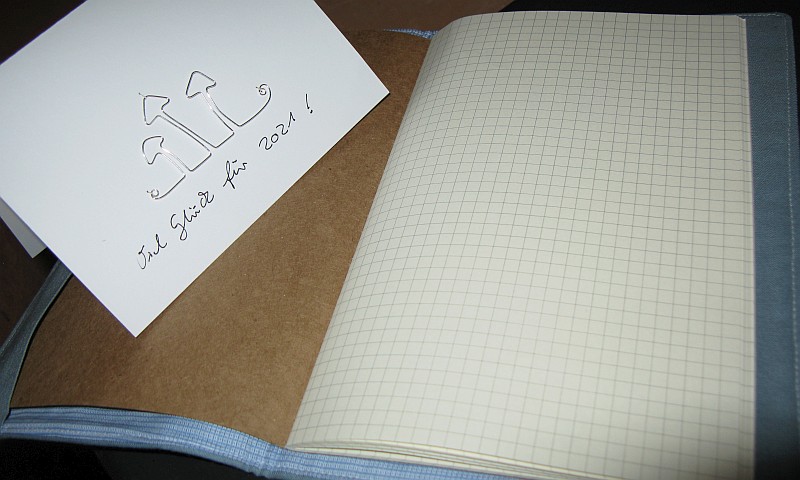 Viel Glück für 2021!